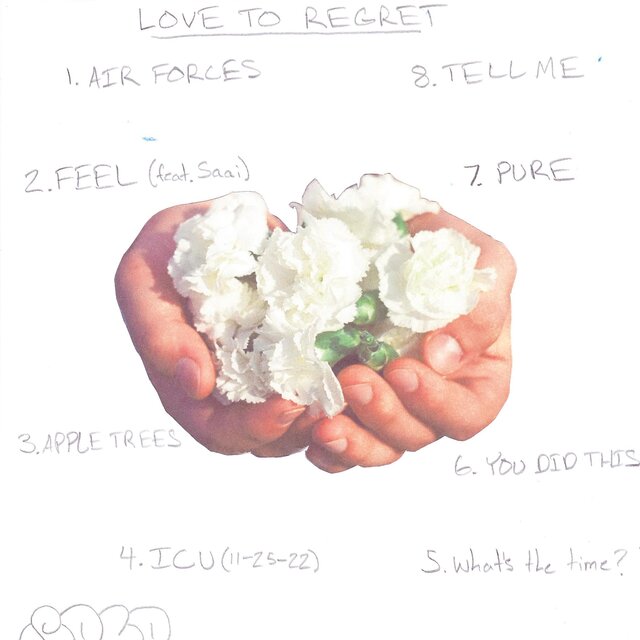 LOVE TO REGRET
1. AIR FORCES
8. TELL ME
2. FEEL (feat. Saai)
7. PURE
3. APPLE TREES
6. YOU DID THIS
4. ICU (11-25-22)
5. What's the time?